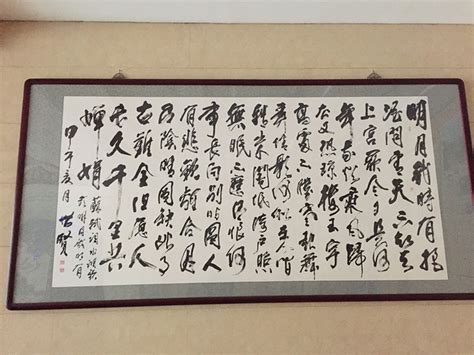 明月幾時有把
酒問青天不知天
上宮闕今夕是何
年我欲乘風歸
去又恐瓊樓玉宇
高處不勝寒起舞
弄清影何似在人間
轉朱閣低綺戶照
無眠不應有恨何
事長向別時圓人
有悲歡離合月有
陰晴圓缺此事
古難全但願人
長久千里共
嬋娟
甲午 月
蘇軾 水調歌
明月幾時有